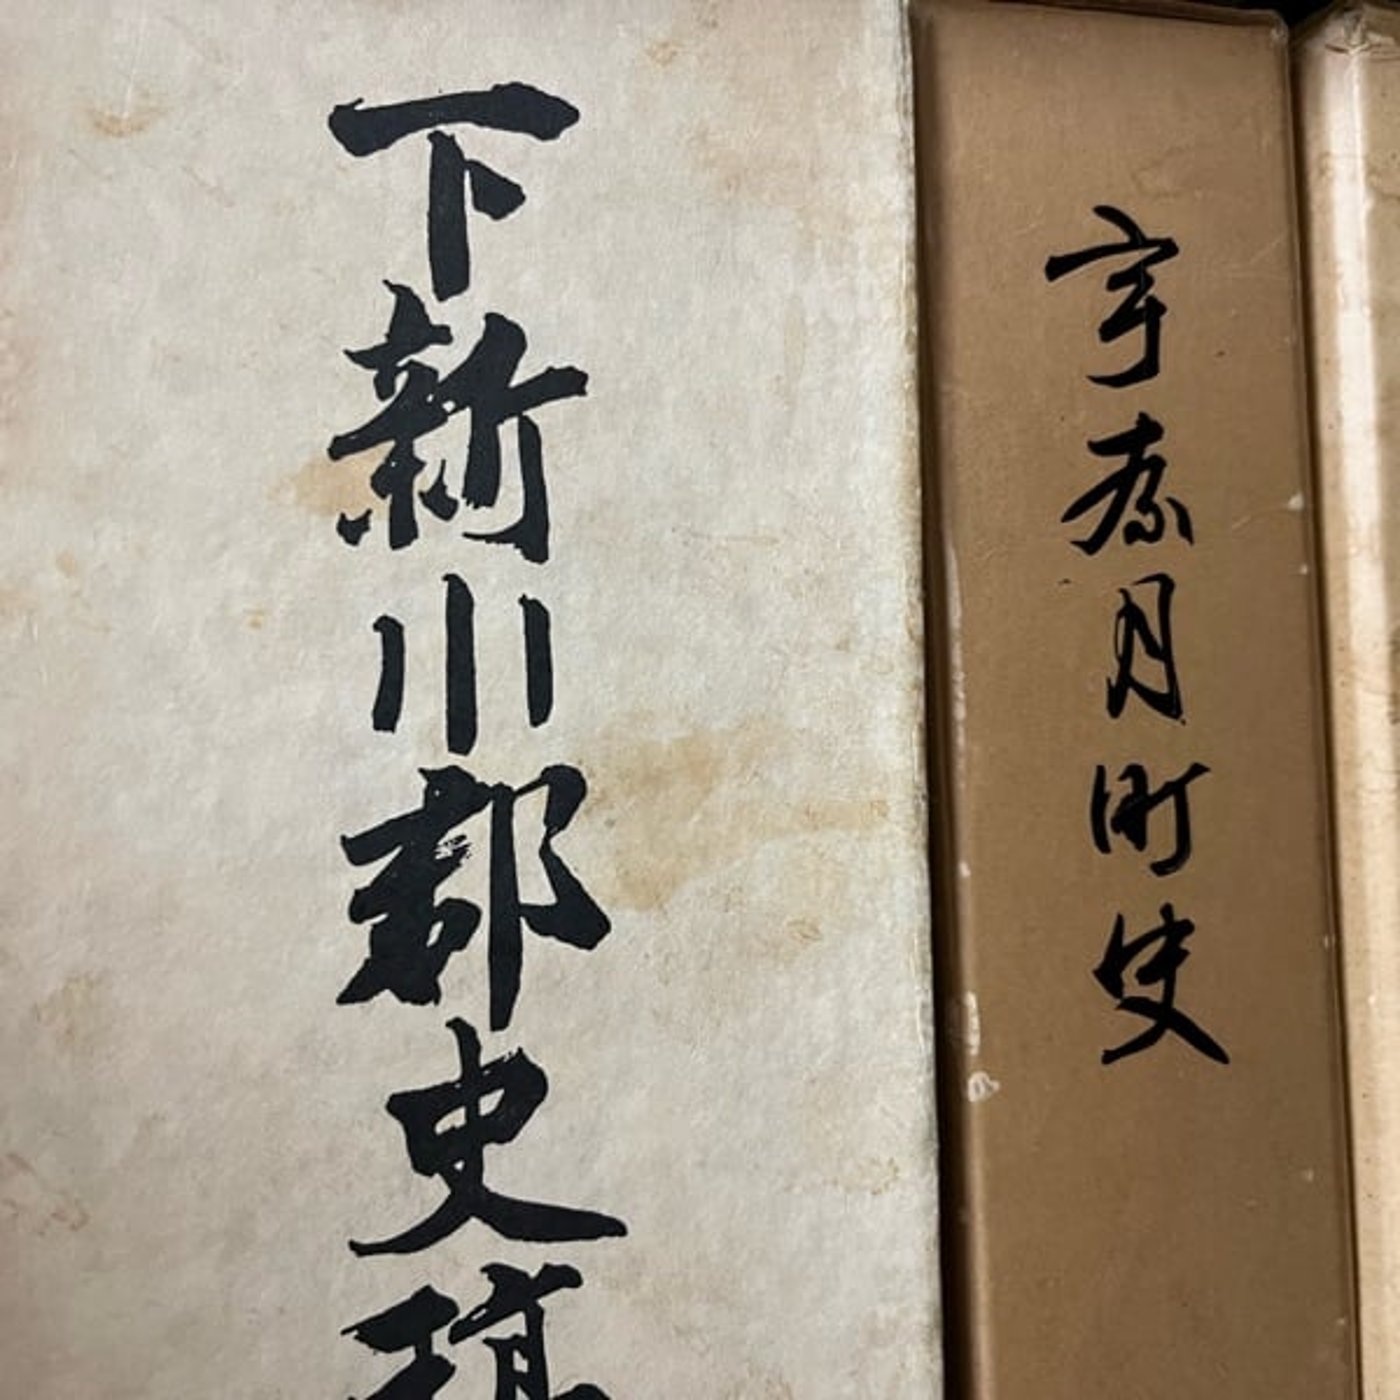 下新川郡史稿
宇奈月町史